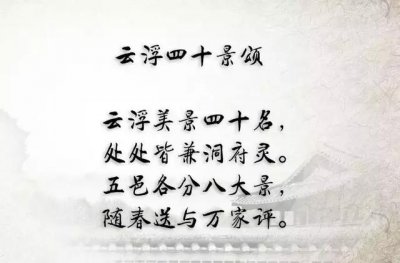 云浮四十景颂
云浮美景四十名，
处处皆兼洞府灵。
五邑各分八大景，
随春送与万家评。